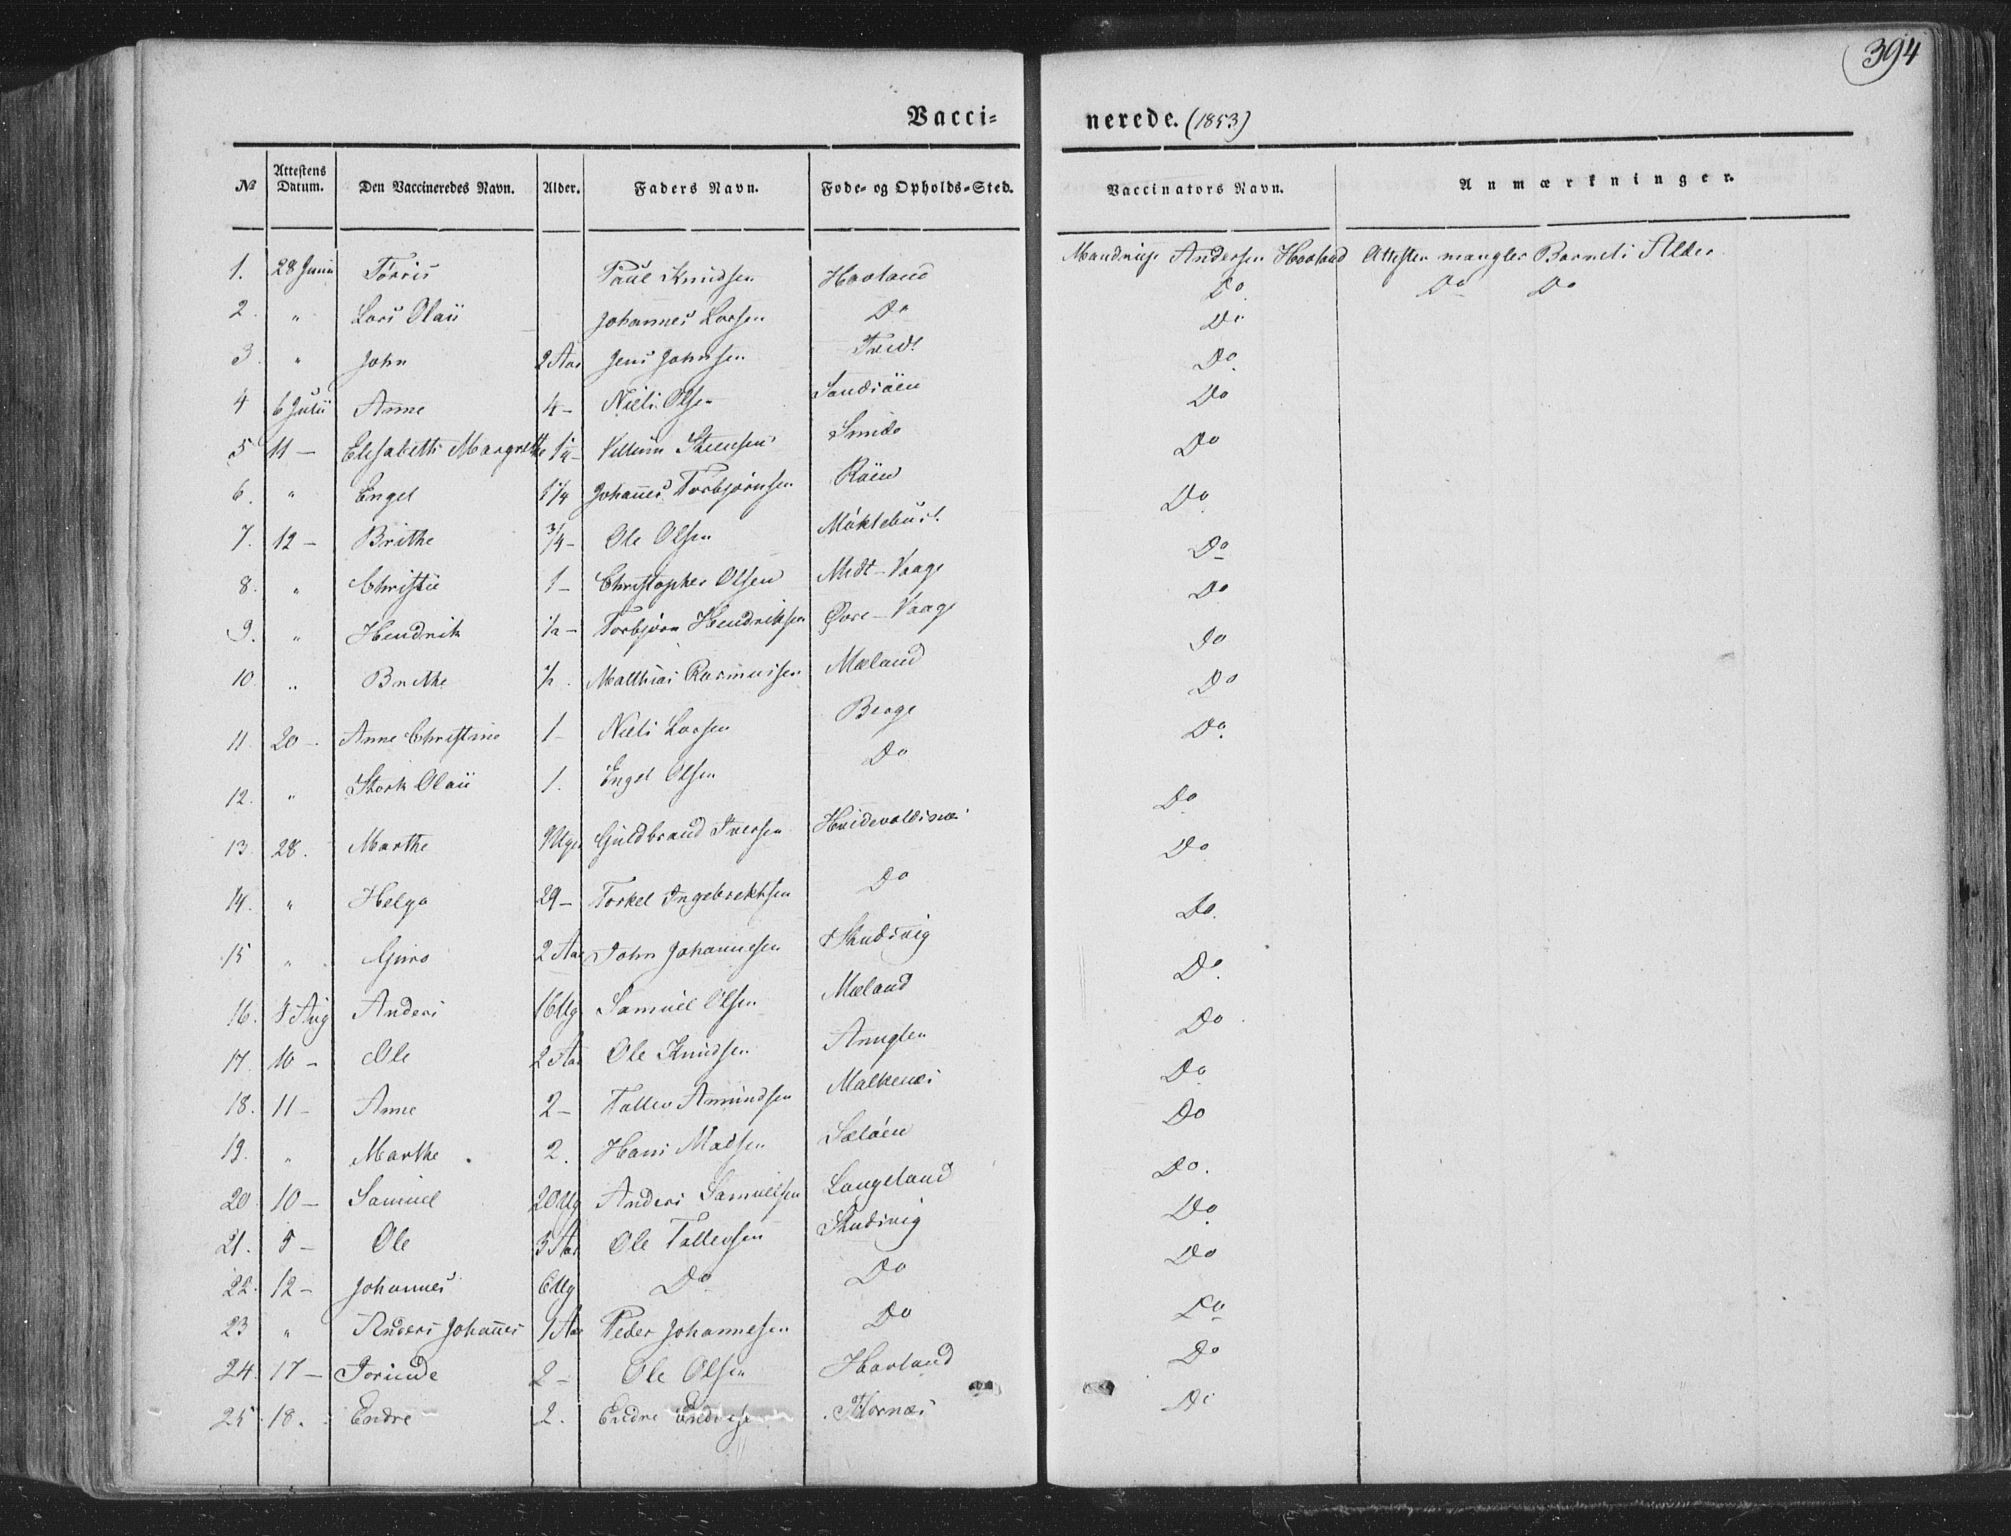 394
Vacci- nerede. (1853)
No Attestens Datum. Den Vaccineredes Navn. Alder. Faders Navn. Føde- og Opholds-Sted. Vaccinators Navn. Anmærkninger.
1. 28 Junii Tørris Paul Knudsen Haaland Andersen Haaland Attesten mangler Barnets Alder
2. " Lars Olaii Johannes Larsen Do Do Do Do
3. " John 2 Aar Jens Johnsen Tvedt Do
4 6 Julii Anne 4 - Niels Olsen Sandsöen Do
5 11 - Elisabeth Margrethe Villum Steensen Do
6. " Engel 1 1/4 Johannes Torbjørnsen Röen Do
7. 12 - Brithe 3/4 - Ole Olsen Møklebust Do
8. " Christie 1 - Christopher Olsen Midt-Vaage Do
9. " Hendrik 1/2 - Torbjørn Hendriksen Øvre-Vaage Do
10. " Brithe 1/2. Matthias Rasmussen Mæland Do
11. 20 - Anne Christine 1 - Niels Larsen Berge Do
12. " Stork Olaii 1. Engel Olsen Do Do
13. 28. Marthe 9 Uger Guldbrand Iversen Do
14. " Helga 29 - Torkel Ingebrektsen Do Do
15 " Guro 2 Aar John Johannesen Skudsvig Do
16. 8 Aug Anders 16 Ug Samuel Olsen Mæland Do
17. 10 - Ole 2 Aar Ole Knudsen Anuglen Do
18. 11 - Anne 2 - Tollev Amundsen Malkenes Do
19. " Marthe 2. Hans Madsen Selöen Do
20 10 - Samuel 20 Ug Anders Samuelsen Langeland Do.
21. 5 - Ole 3 Aar Ole Tollevsen Skudsvig Do
22. 12 - Johannes 6 Ug Do Do Do
23 " Anders Johannes 1 Aar Peder Johannesen Do Do
24. 17 - Torinde 2 - Ole Olsen Haaland Do
25. 18. Endre 2. Endre Endresen Hornæs Do